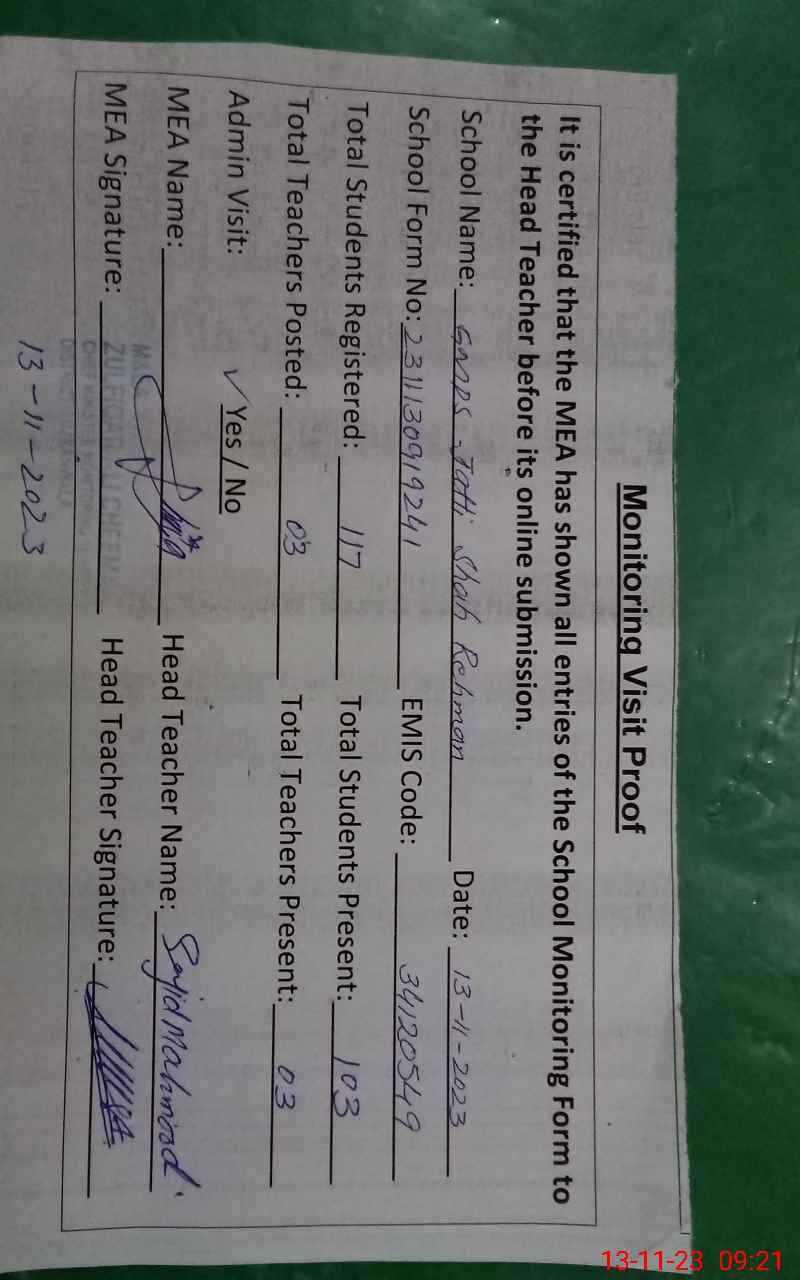 Monitoring Visit Proof
It is certified that the MEA has shown all entries of the School Monitoring Form to
the Head Teacher before its online submission.
School Name: GMPS Jatti Shah Rehman Date: 13-11-2023
School Form No: 2311130919241 EMIS Code: 34120549
Total Students Registered: 117 Total Students Present: 103
Total Teachers Posted: 03 Total Teachers Present: 03
Admin Visit: ✓ Yes / No
MEA Name: Head Teacher Name: Sajid Mahmood
MEA Signature: Head Teacher Signature:
13-11-2023
13-11-23 09:21